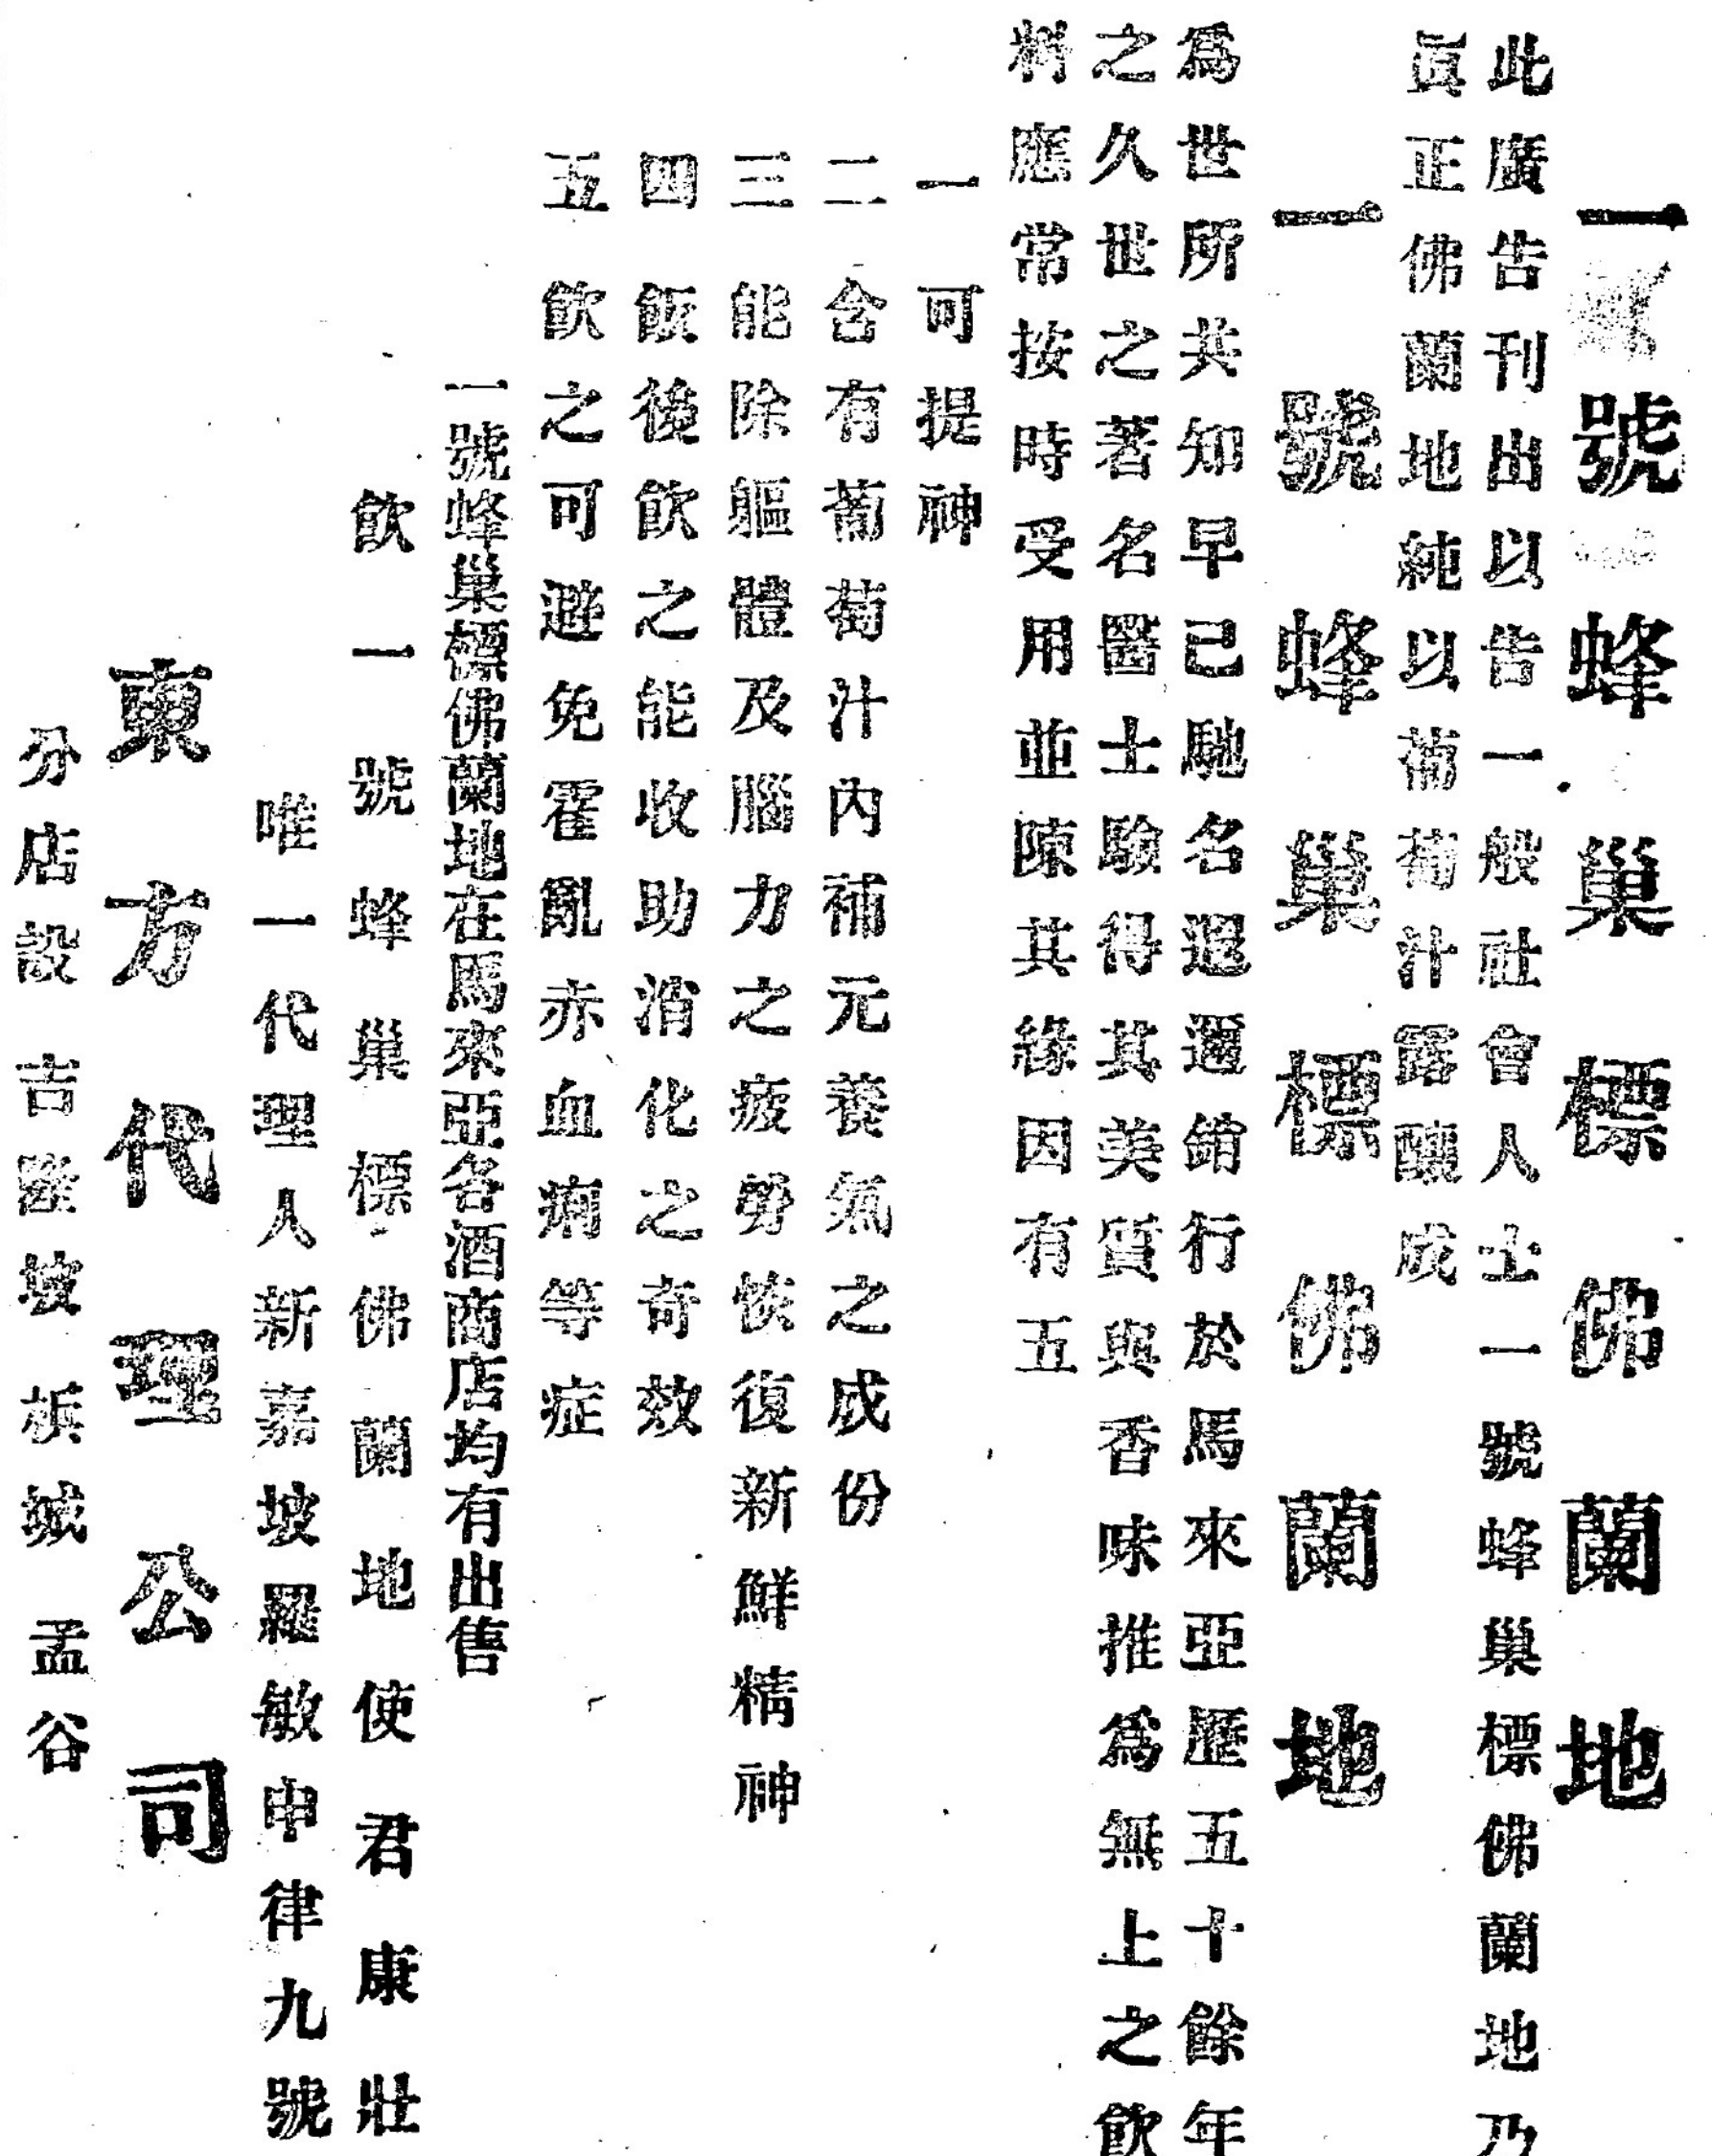 一號蜂巢標佛蘭地
此廣告刊出以告一般社會人士一號蜂巢標佛蘭地乃
眞正佛蘭地純以葡萄汁露釀成
一號蜂巢標佛蘭地
爲世所共知早已馳名遐邇銷行於馬來亞歷五十餘年
之久世之著名醫士驗得其美質與香味推爲無上之飲
料應常按時受用並陳其緣因有五
一 可提神
二 含有葡萄汁內補元養氣之成份
三 能除軀體及腦力之疲勞恢復新鮮精神
四 飯後飲之能收助消化之奇效
五 飲之可避免霍亂赤血痢等症
一號蜂巢標佛蘭地在馬來亞各酒商店均有出售
飲一號蜂巢標佛蘭地使君康壯
唯一代理人新嘉坡羅敏申律九號
東方代理公司
分店設 吉隆坡 檳城 孟谷